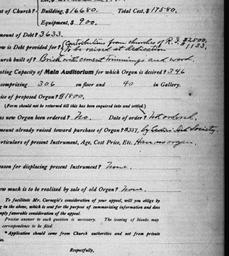 Building, $16680.
of Church?- Total Cost, $17580.
Equipment, $900.
mount of Debt? 3633.
w is Debt provided for? Contributions from churches of R. I. $2500.
To be raised at dedication 1133.
urch built of? Brick with cement trimmings and wood.
ating Capacity of Main Auditorium for which Organ is desired? 346
omprising 306 on floor and 40 in Gallery.
ice of proposed Organ $1500.
(Form should not be returned till this has been enquired into and settled.)
s new Organ been ordered? No. Date of order? Not ordered.
mount already raised toward purchase of Organ? $337, by Ladies Aid Society.
rticulars of present Instrument, Age, Cost Price, Etc. Harmo organ.
eason for displacing present Instrument? None.
ow much is to be realized by sale of old Organ? None.
To facilitate Mr. Carnegie's consideration of your appeal, will you oblige by
g in the above, which is sent for the purpose of summarizing information and does
mply favorable consideration of the appeal.
Precise answer to each question is necessary. The issuing of blanks may
correspondence to be filed.
Application should come from Church authorities and not from private
Respectfully,